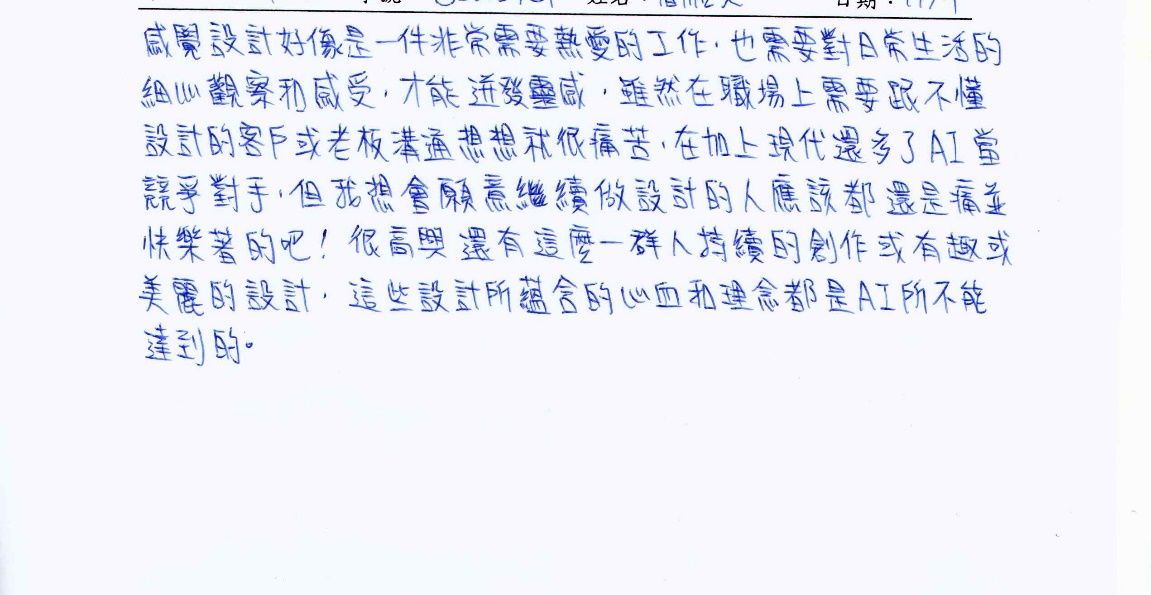 姓名：
日期：
感覺設計好像是一件非常需要熱愛的工作，也需要對日常生活的
細心觀察和感受，才能迸發靈感，雖然在職場上需要跟不懂
設計的客戶或老板溝通想想就很痛苦，在加上現代還多了AI當
競爭對手，但我想會願意繼續做設計的人應該都還是痛並
快樂著的吧！很高興還有這麼一群人持續的創作或有趣或
美麗的設計，這些設計所蘊含的心血和理念都是AI所不能
達到的。